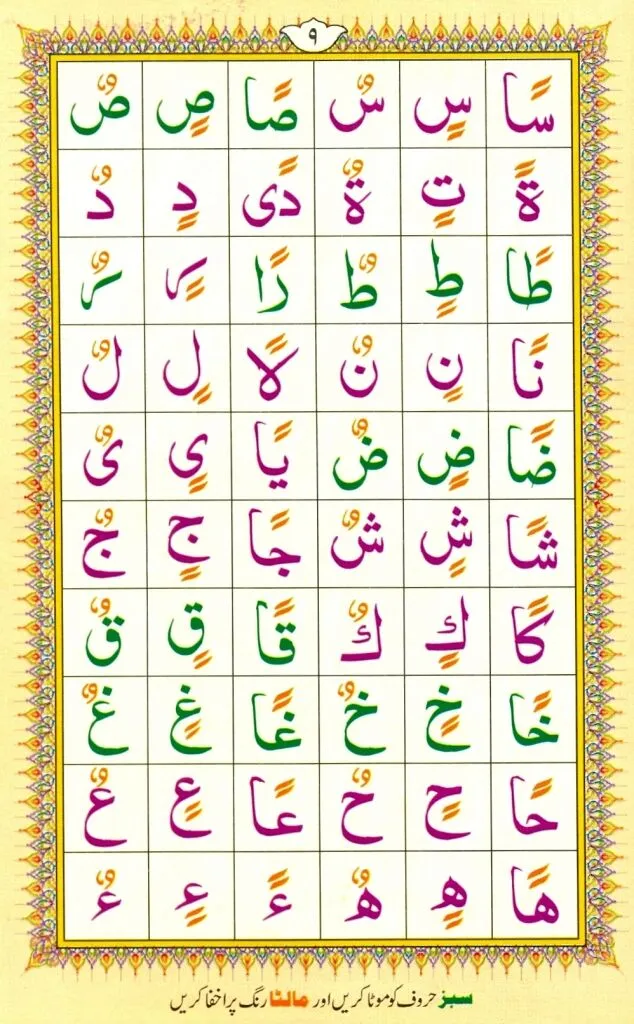 ٩
سًا سٍ سٌ صًا صٍ صٌ
ةً تٍ ةٌ دًى دٍ دٌ
طًا طٍ طٌ رًا رٍ رٌ
نًا نٍ نٌ لًا لٍ لٌ
ضًا ضٍ ضٌ يًا یٍ یٌ
شًا شٍ شٌ جًا جٍ جٌ
كًا كٍ كٌ قًا قٍ قٌ
خًا خٍ خٌ غًا غٍ غٌ
حًا حٍ حٌ عًا عٍ عٌ
هًا هٍ هٌ ءً ءٍ ءٌ
سبز حروف کو موٹا کریں اور مالٹا رنگ پر اخفا کریں